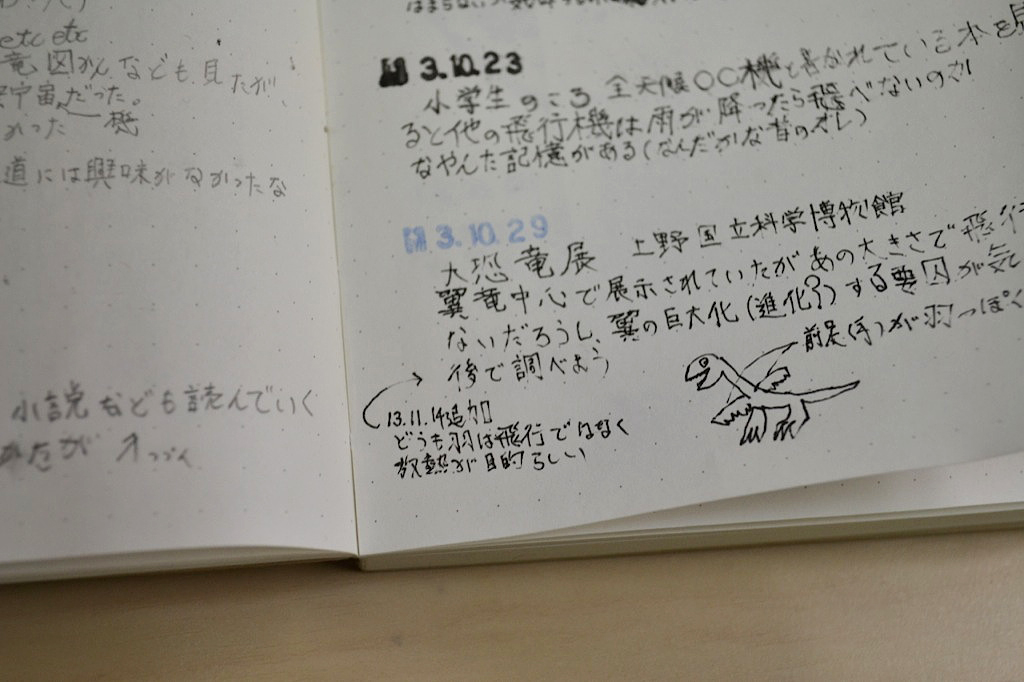 etc etc
竜 図かんなども、見たが
宇宙 だった。
かった 機
道には興味がなかったな
小説なども読んでいく
かたが
13.10.23
小学生のころ 全天候〇〇機と書かれている本を見
ると他の飛行機は雨が降ったら飛べないのか!
なやんだ記憶がある(なんだかな昔のオレ)
13.10.29
大恐竜展 上野国立科学博物館
翼竜中心で展示されていたがあの大きさで飛行
ないだろうし、翼の巨大化(進化?)する要因が気
後で調べよう
前足(手)が羽っぽく
13.11.14追加
どうも羽は飛行ではなく
放熱が目的らしい